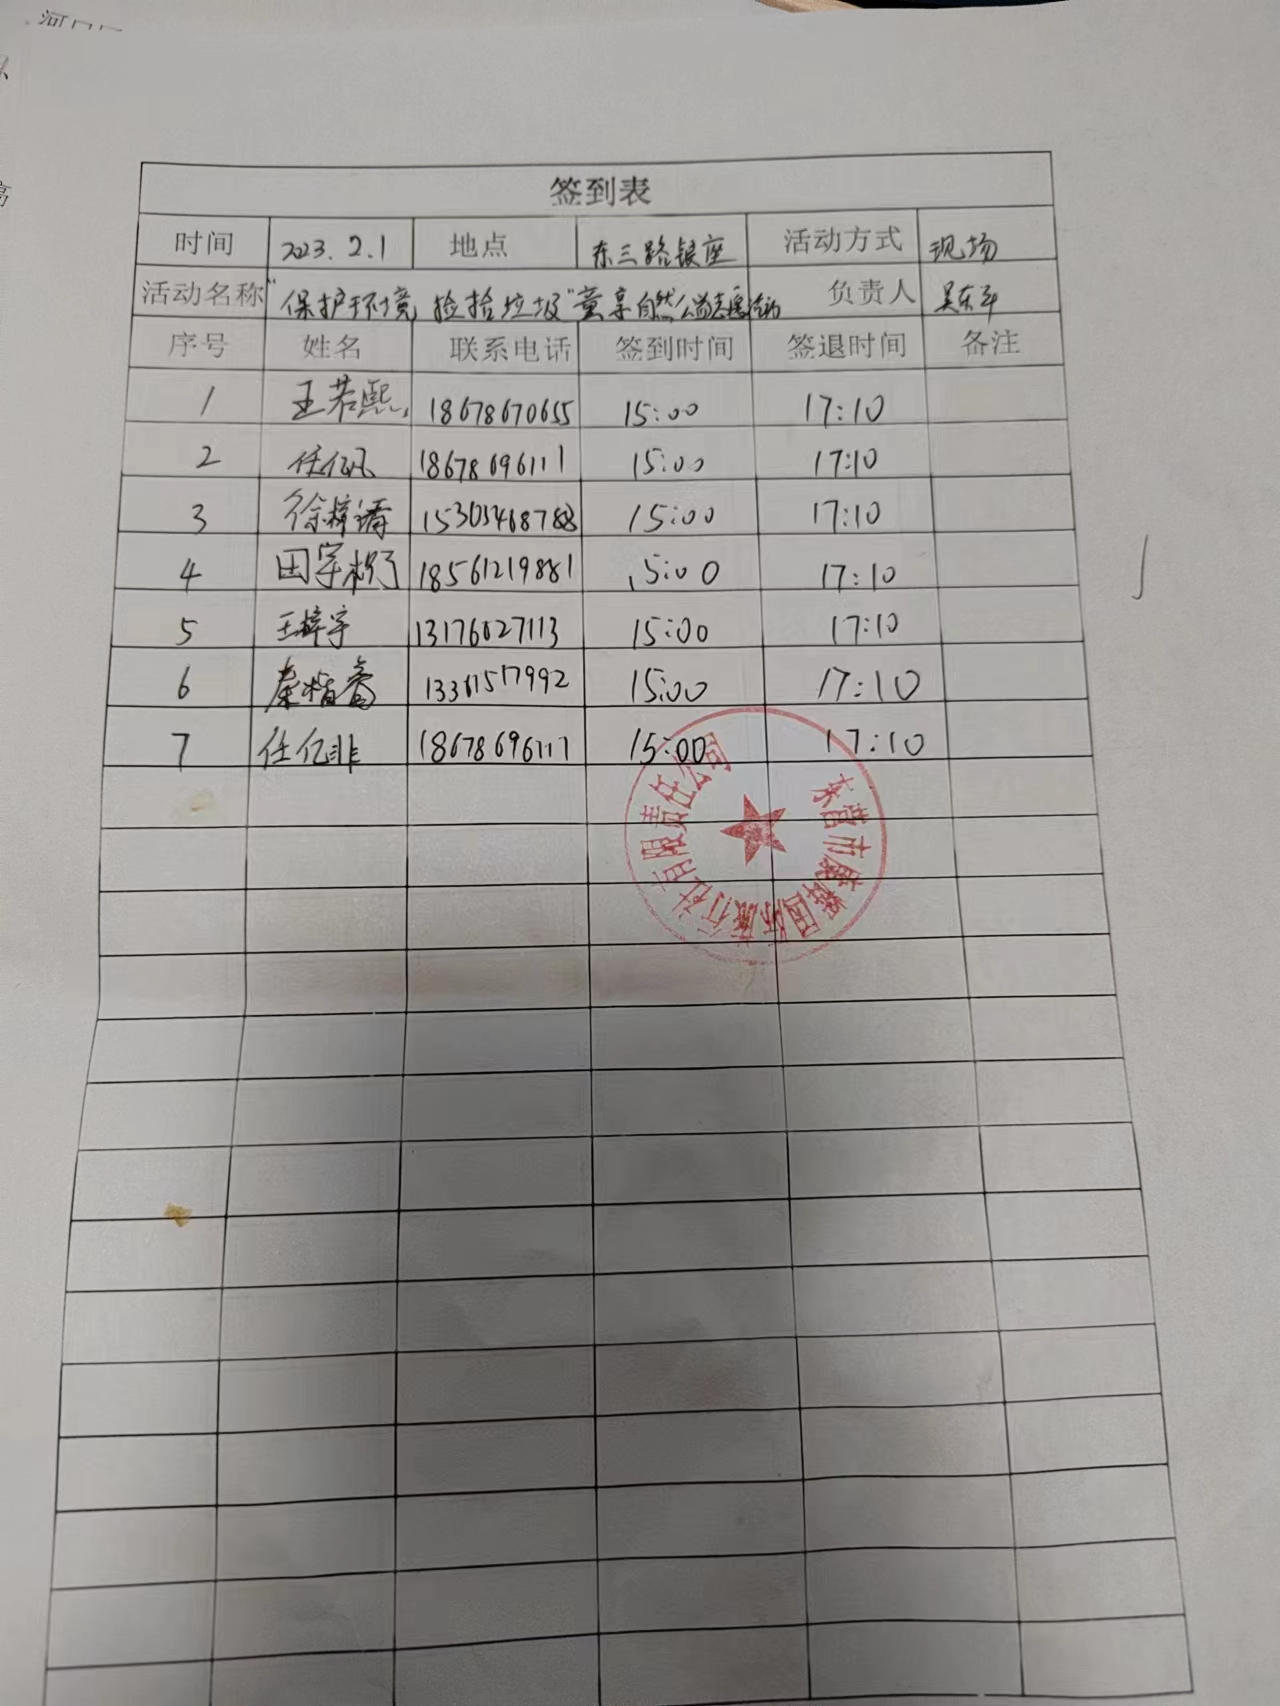 签到表
时间 2023.2.1 地点 东三路银座 活动方式 现场
活动名称 "保护环境,捡拾垃圾"童享自然公益志愿活动 负责人
序号 姓名 联系电话 签到时间 签退时间 备注
1 王若熙 18678670655 15:00 17:10
2 任亿凡 18678696111 15:00 17:10
3 徐梓清 15305468788 15:00 17:10
4 田宇 18561219881 15:00 17:10
5 王梓宇 13176027113 15:00 17:10
6 秦 13361517992 15:00 17:10
7 任亿非 18678696111 15:00 17:10
东营市康辉国际旅行社有限责任公司